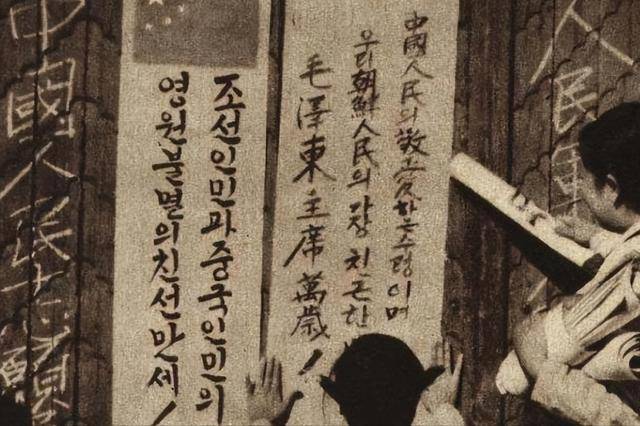 人民軍
中國人民의敬愛하는수령이며
우리朝鮮人民의가장친근한
毛澤東主席萬歲!
조선인민과중국인민의
영원불멸의친선만세!
中國人民志願